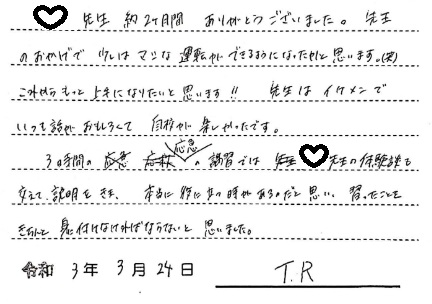 先生 約2ヶ月間 ありがとうございました。 先生
のおかげで 少しは マシな 運転ができるようになったかなと思います。(笑)
これからもっと上手になりたいと思います!! 先生は イケメンで
いつも話がおもしろくて 自校が楽しかったです。
3時間の 応急 の 講習では 先生の体験談も
交えて 説明をきき、本当に役に立つ時があるのだと思い、習ったことを
きちんと 身に付けなければならないと 思いました。
令和 3年 3月 24日 T.R